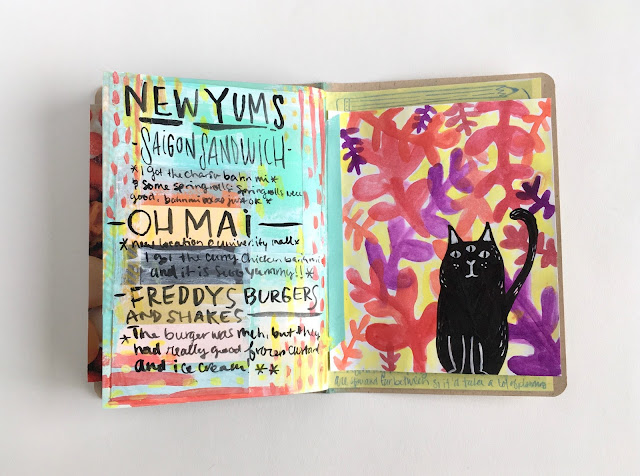 NEW YUMS
-SAIGON SANDWICH-
* I got the char siu bahn mi *
& some spring rolls. Spring rolls very
good. bahn mi was just ok *
-OH MAI-
* new location @ university mall *
I got the curry chicken bahn mi
and it is sooo yummy!! *
-FREDDYS BURGERS
AND SHAKES-
* The burger was meh, but they
had really good frozen custard
and ice cream! **